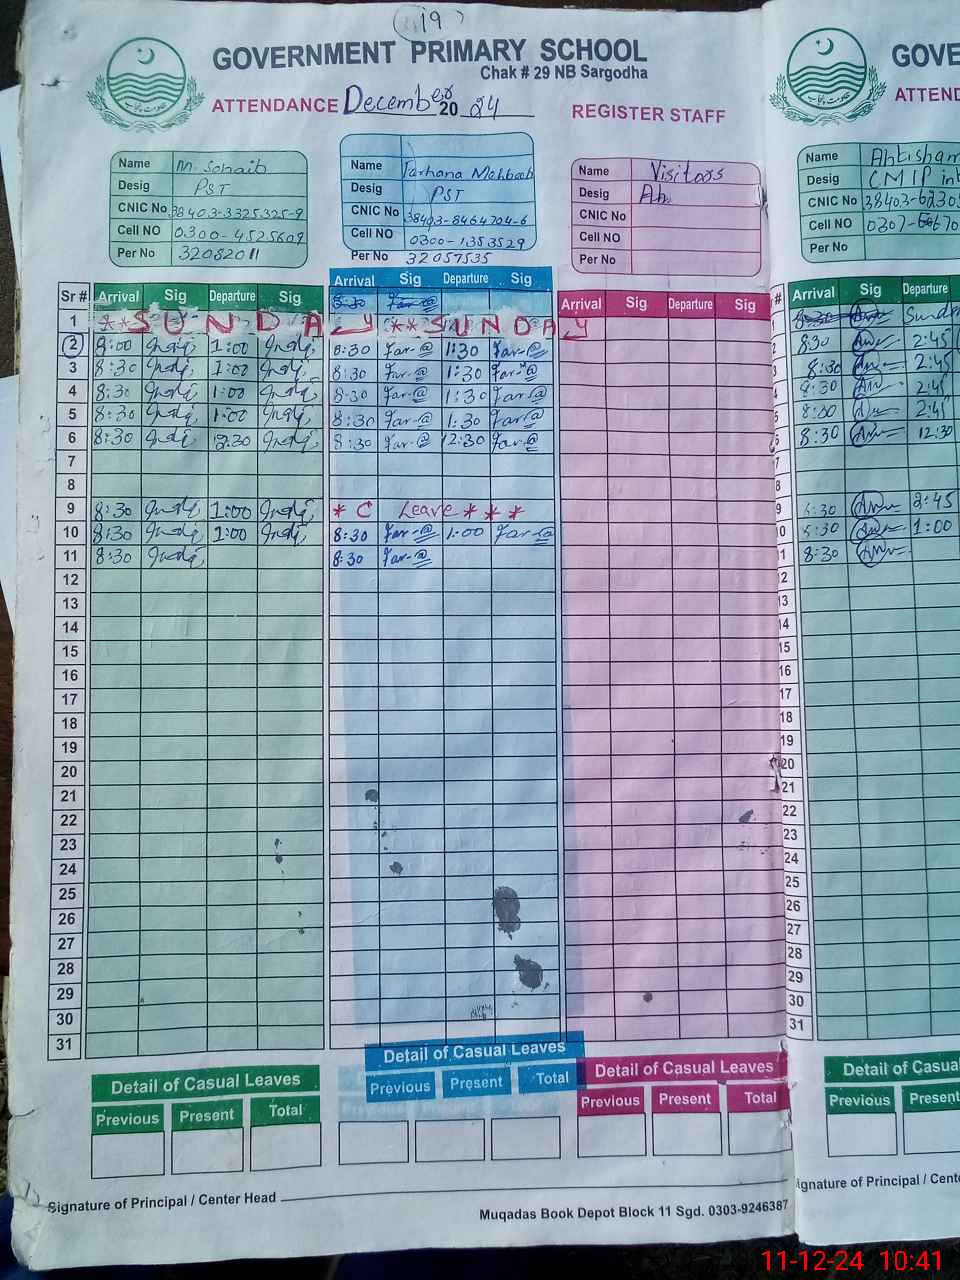 19
GOVERNMENT PRIMARY SCHOOL
Chak # 29 NB Sargodha
ATTENDANCE December 20 24 REGISTER STAFF
Name M. Sohaib
Desig PST
CNIC No 38403-3325325-9
Cell NO 0300-4525609
Per No 32082011
Name Farhana Mahboob
Desig PST
CNIC No 38403-8464704-6
Cell NO 0300-1353529
Per No 32057535
Name Visitors
Desig
CNIC No
Cell NO
Per No
GOVE
ATTEND
Name Ahtisham
Desig
CNIC No 38403-6230
Cell NO
Per No
Sr # Arrival Sig Departure Sig Arrival Sig Departure Sig Arrival Sig Departure Sig # Arrival Sig Departure
8:30 Far-@
1 **SUNDAY **SUNDAY
2 8:00 1:00 8:30 Far-@ 1:30 Far-@ 2 8:30 2:45
3 8:30 1:00 8:30 Far-@ 1:30 Far-@ 3 8:30 2:45
4 8:30 1:00 8:30 Far-@ 1:30 Far-@ 4 8:30 2:45
5 8:30 1:00 8:30 Far-@ 1:30 Far-@ 5 2:45
6 8:30 8:30 Far-@ 12:30 Far-@ 6 8:30 12:30
7 7
8 8
9 8:30 1:00 * C Leave * * * 9 2:45
10 8:30 1:00 8:30 Far-@ 1:00 Far-@ 0 1:00
11 8:30 8:30 Far-@ 1 8:30
12 12
13 13
14 14
15 15
16 16
17 17
18 18
19 19
20 20
21 21
22 22
23 23
24 24
25 25
26 26
27 27
28 28
29 29
30 30
31 31
Detail of Casual Leaves
Previous Present Total
Detail of Casual Leaves
Previous Present Total
Detail of Casual Leaves
Previous Present Total
Detail of Casual
Previous Present
Signature of Principal / Center Head
Muqadas Book Depot Block 11 Sgd. 0303-9246387
ignature of Principal / Cente
11-12-24 10:41